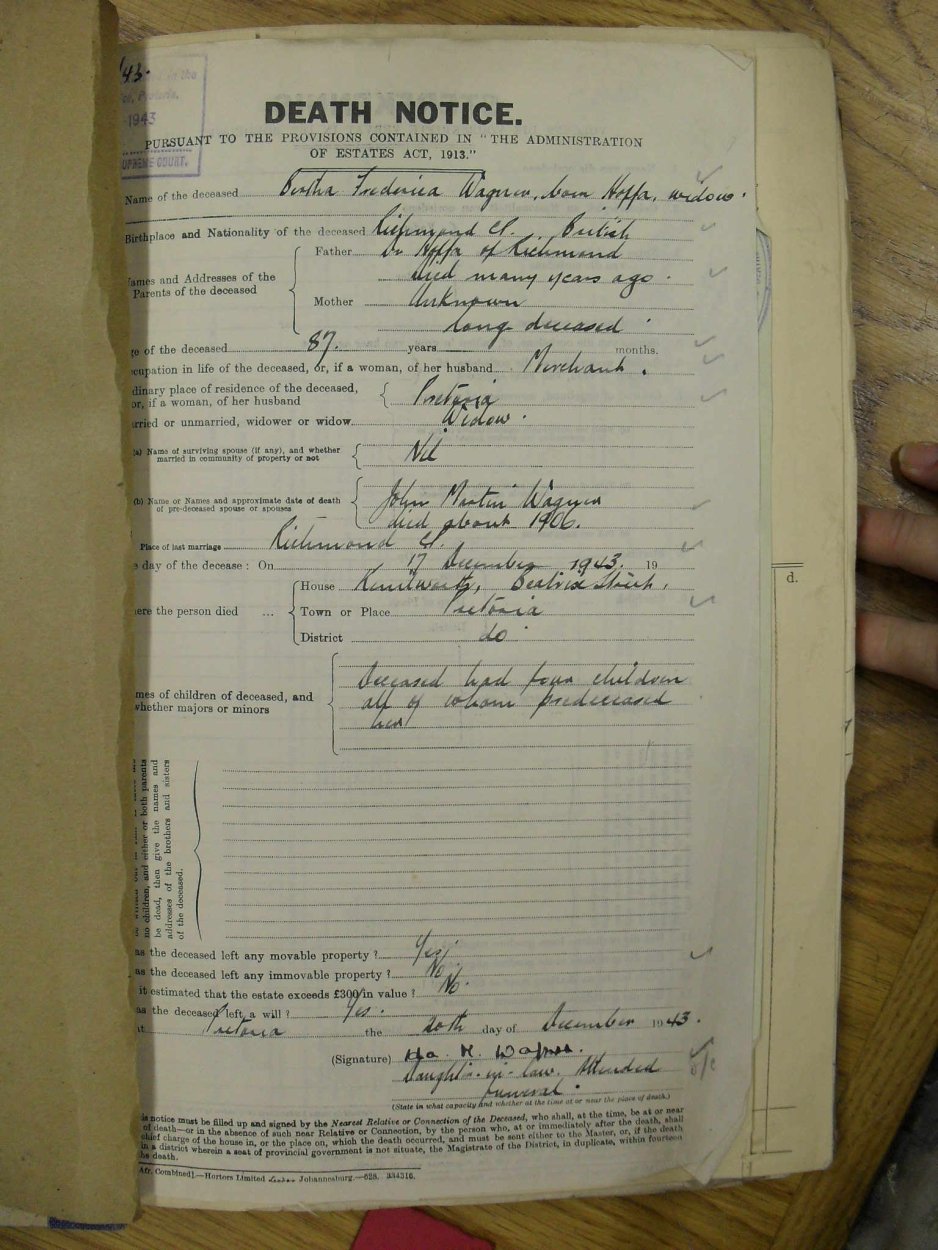 /43.
in the
Pretoria.
1943
SUPREME COURT.
DEATH NOTICE.
PURSUANT TO THE PROVISIONS CONTAINED IN "THE ADMINISTRATION
OF ESTATES ACT, 1913."
Name of the deceased Bertha Frederica Wagner, born Hoffa, widow.
Birthplace and Nationality of the deceased Richmond C.P. British
Father Dr Hoffa of Richmond
died many years ago.
Names and Addresses of the
Parents of the deceased
Mother Unknown
long deceased.
ge of the deceased 87. years months.
cupation in life of the deceased, or, if a woman, of her husband Merchant.
dinary place of residence of the deceased,
or, if a woman, of her husband Pretoria
arried or unmarried, widower or widow Widow.
(a) Name of surviving spouse (if any), and whether
married in community of property or not Nil
(b) Name or Names and approximate date of death
of pre-deceased spouse or spouses John Martin Wagner
died about 1906.
Place of last marriage Richmond C.P.
e day of the decease: On 17 December 1943. 19
House Kenilworth, Beatrix Street.
ere the person died ... Town or Place Pretoria
District do
mes of children of deceased, and
whether majors or minors
Deceased had four children
all of whom predeceased
her
no children, and either or both parents
be dead, then give the names and
addresses of the brothers and sisters
of the deceased.
as the deceased left any movable property? Yes.
as the deceased left any immovable property? No.
it estimated that the estate exceeds £300 in value? No.
as the deceased left a will? Yes.
t Pretoria the 20th day of December 1943.
(Signature) Wagner.
Daught-in-law. Attended
funeral.
(State in what capacity and whether at the time at or near the place of death.)
is notice must be filled up and signed by the Nearest Relative or Connection of the Deceased, who shall, at the time, be at or near
of death—or in the absence of such near Relative or Connection, by the person who, at or immediately after the death, shall
chief charge of the house in, or the place on, which the death occurred, and must be sent either to the Master, or, if the death
in a district wherein a seat of provincial government is not situate, the Magistrate of the District, in duplicate, within fourteen
he death.
Afr. Combined].—Hortors Limited Johannesburg.—628. 334316.
d.